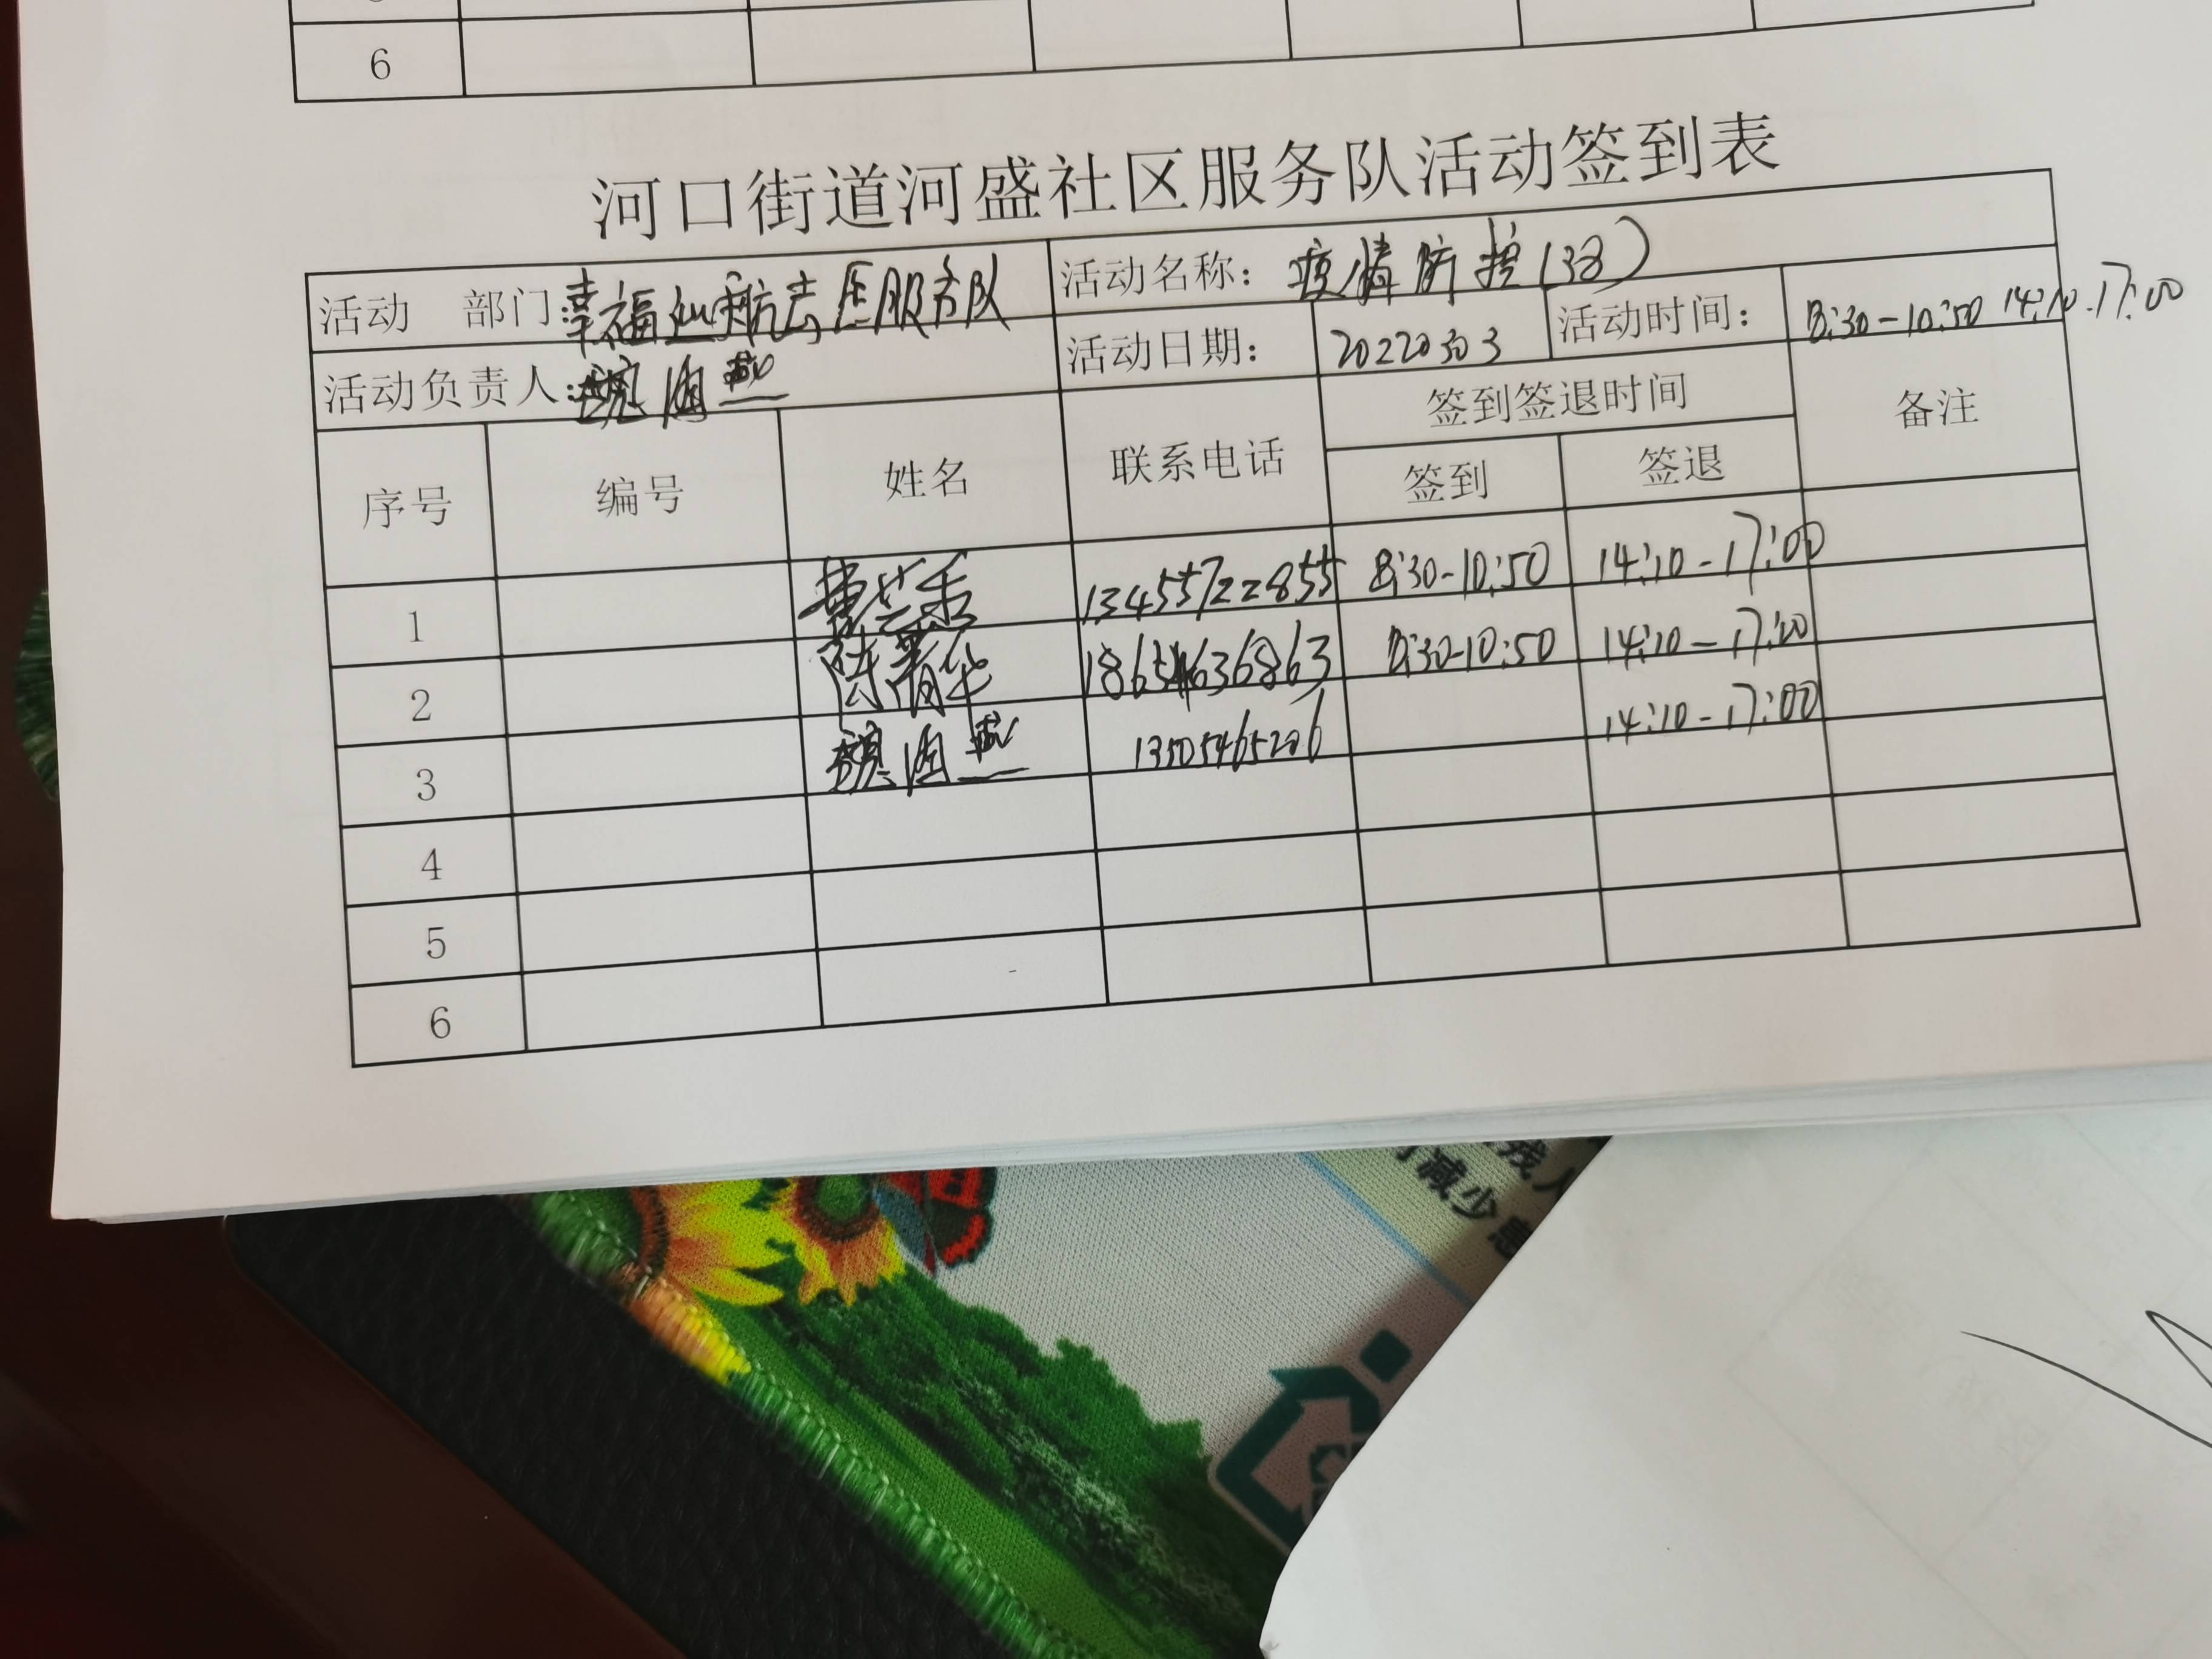 6
河口街道河盛社区服务队活动签到表
活动 部门:幸福 服务队 活动名称: 疫情防控(33)
活动负责人:魏海燕 活动日期: 20220303 活动时间: 8:30-10:50 14:10-17:00
序号 编号 姓名 联系电话 签到签退时间 备注
签到 签退
1 13455722855 8:30-10:50 14:10-17:00
2 陈菁华 18654636863 8:30-10:50 14:10-17:00
3 魏海燕 13505465206 14:10-17:00
4
5
6
残人
减少患